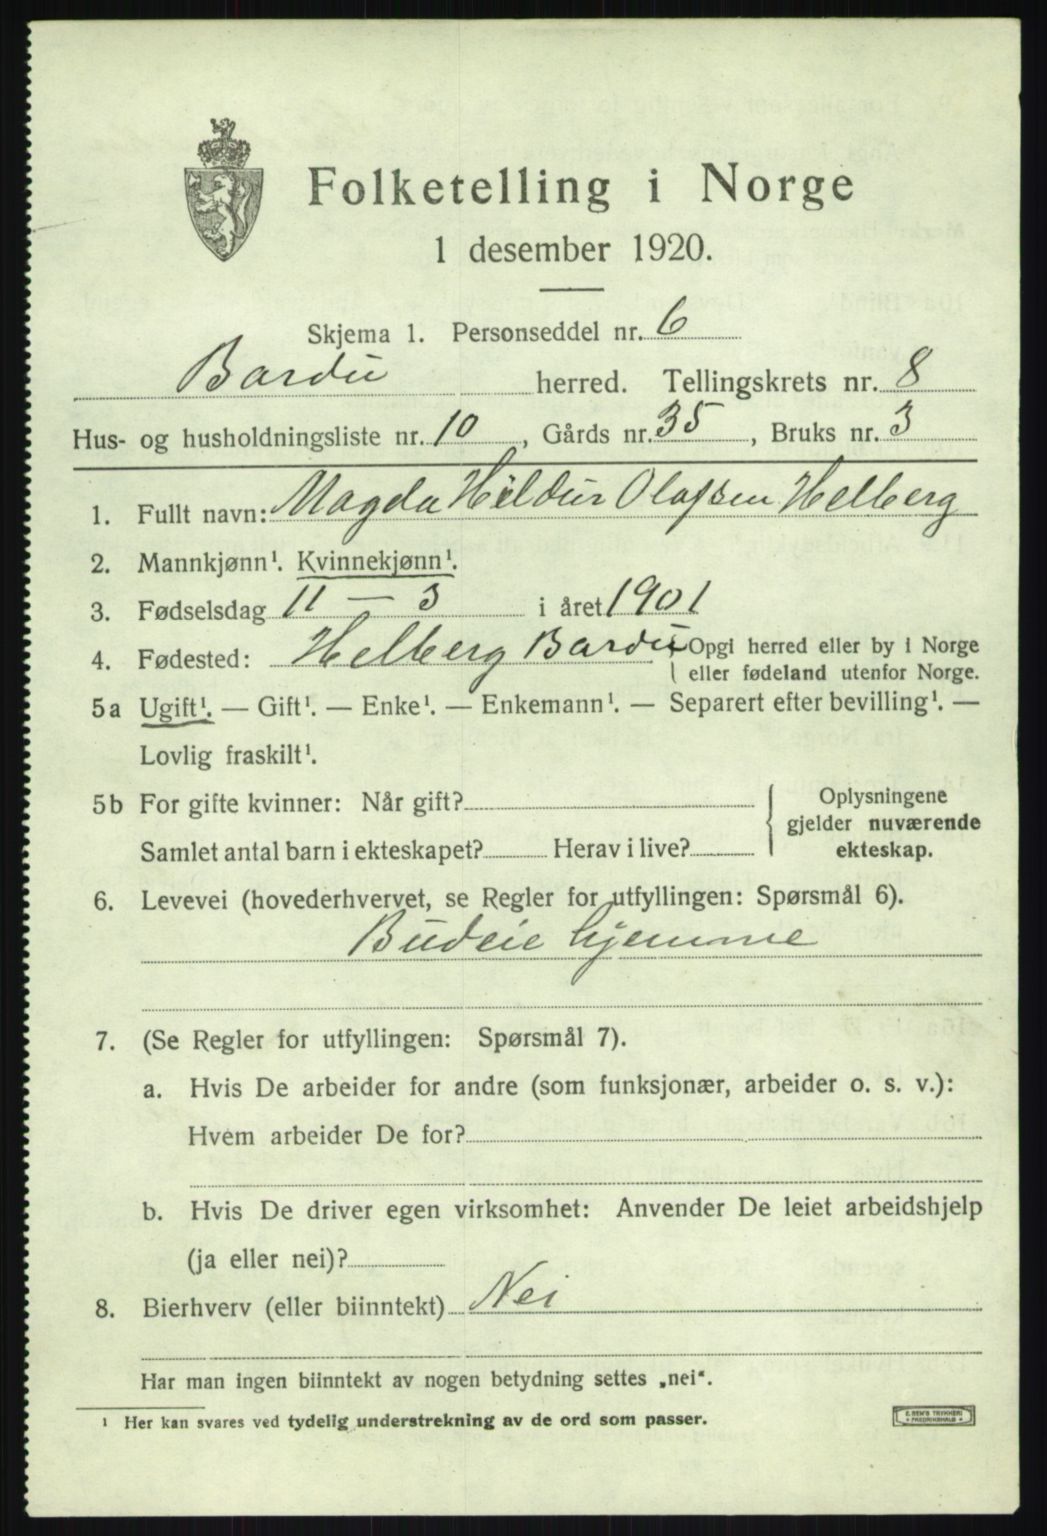 Folketelling i Norge
1 desember 1920.
Skjema 1. Personseddel nr. 6
Bardu herred. Tellingskrets nr. 8
Hus- og husholdningsliste nr. 10, Gårds nr. 35, Bruks nr. 3
1. Fullt navn: Magda Hildur Olafsen Helberg
2. Mannkjønn¹. Kvinnekjønn¹.
3. Fødselsdag 11 – 3 i året 1901
4. Fødested: Helberg Bardu { Opgi herred eller by i Norge
eller fødeland utenfor Norge.
5a Ugift¹. — Gift¹. — Enke¹. — Enkemann¹. — Separert efter bevilling¹. —
Lovlig fraskilt¹.
5b For gifte kvinner: Når gift? { Oplysningene
gjelder nuværende
Samlet antal barn i ekteskapet? Herav i live? ekteskap.
6. Levevei (hovederhvervet, se Regler for utfyllingen: Spørsmål 6).
Budeie hjemme
7. (Se Regler for utfyllingen: Spørsmål 7).
a. Hvis De arbeider for andre (som funksjonær, arbeider o. s. v.):
Hvem arbeider De for?
b. Hvis De driver egen virksomhet: Anvender De leiet arbeidshjelp
(ja eller nei)?
8. Bierhverv (eller biinntekt) Nei
Har man ingen biinntekt av nogen betydning settes „nei“.
¹ Her kan svares ved tydelig understrekning av de ord som passer.